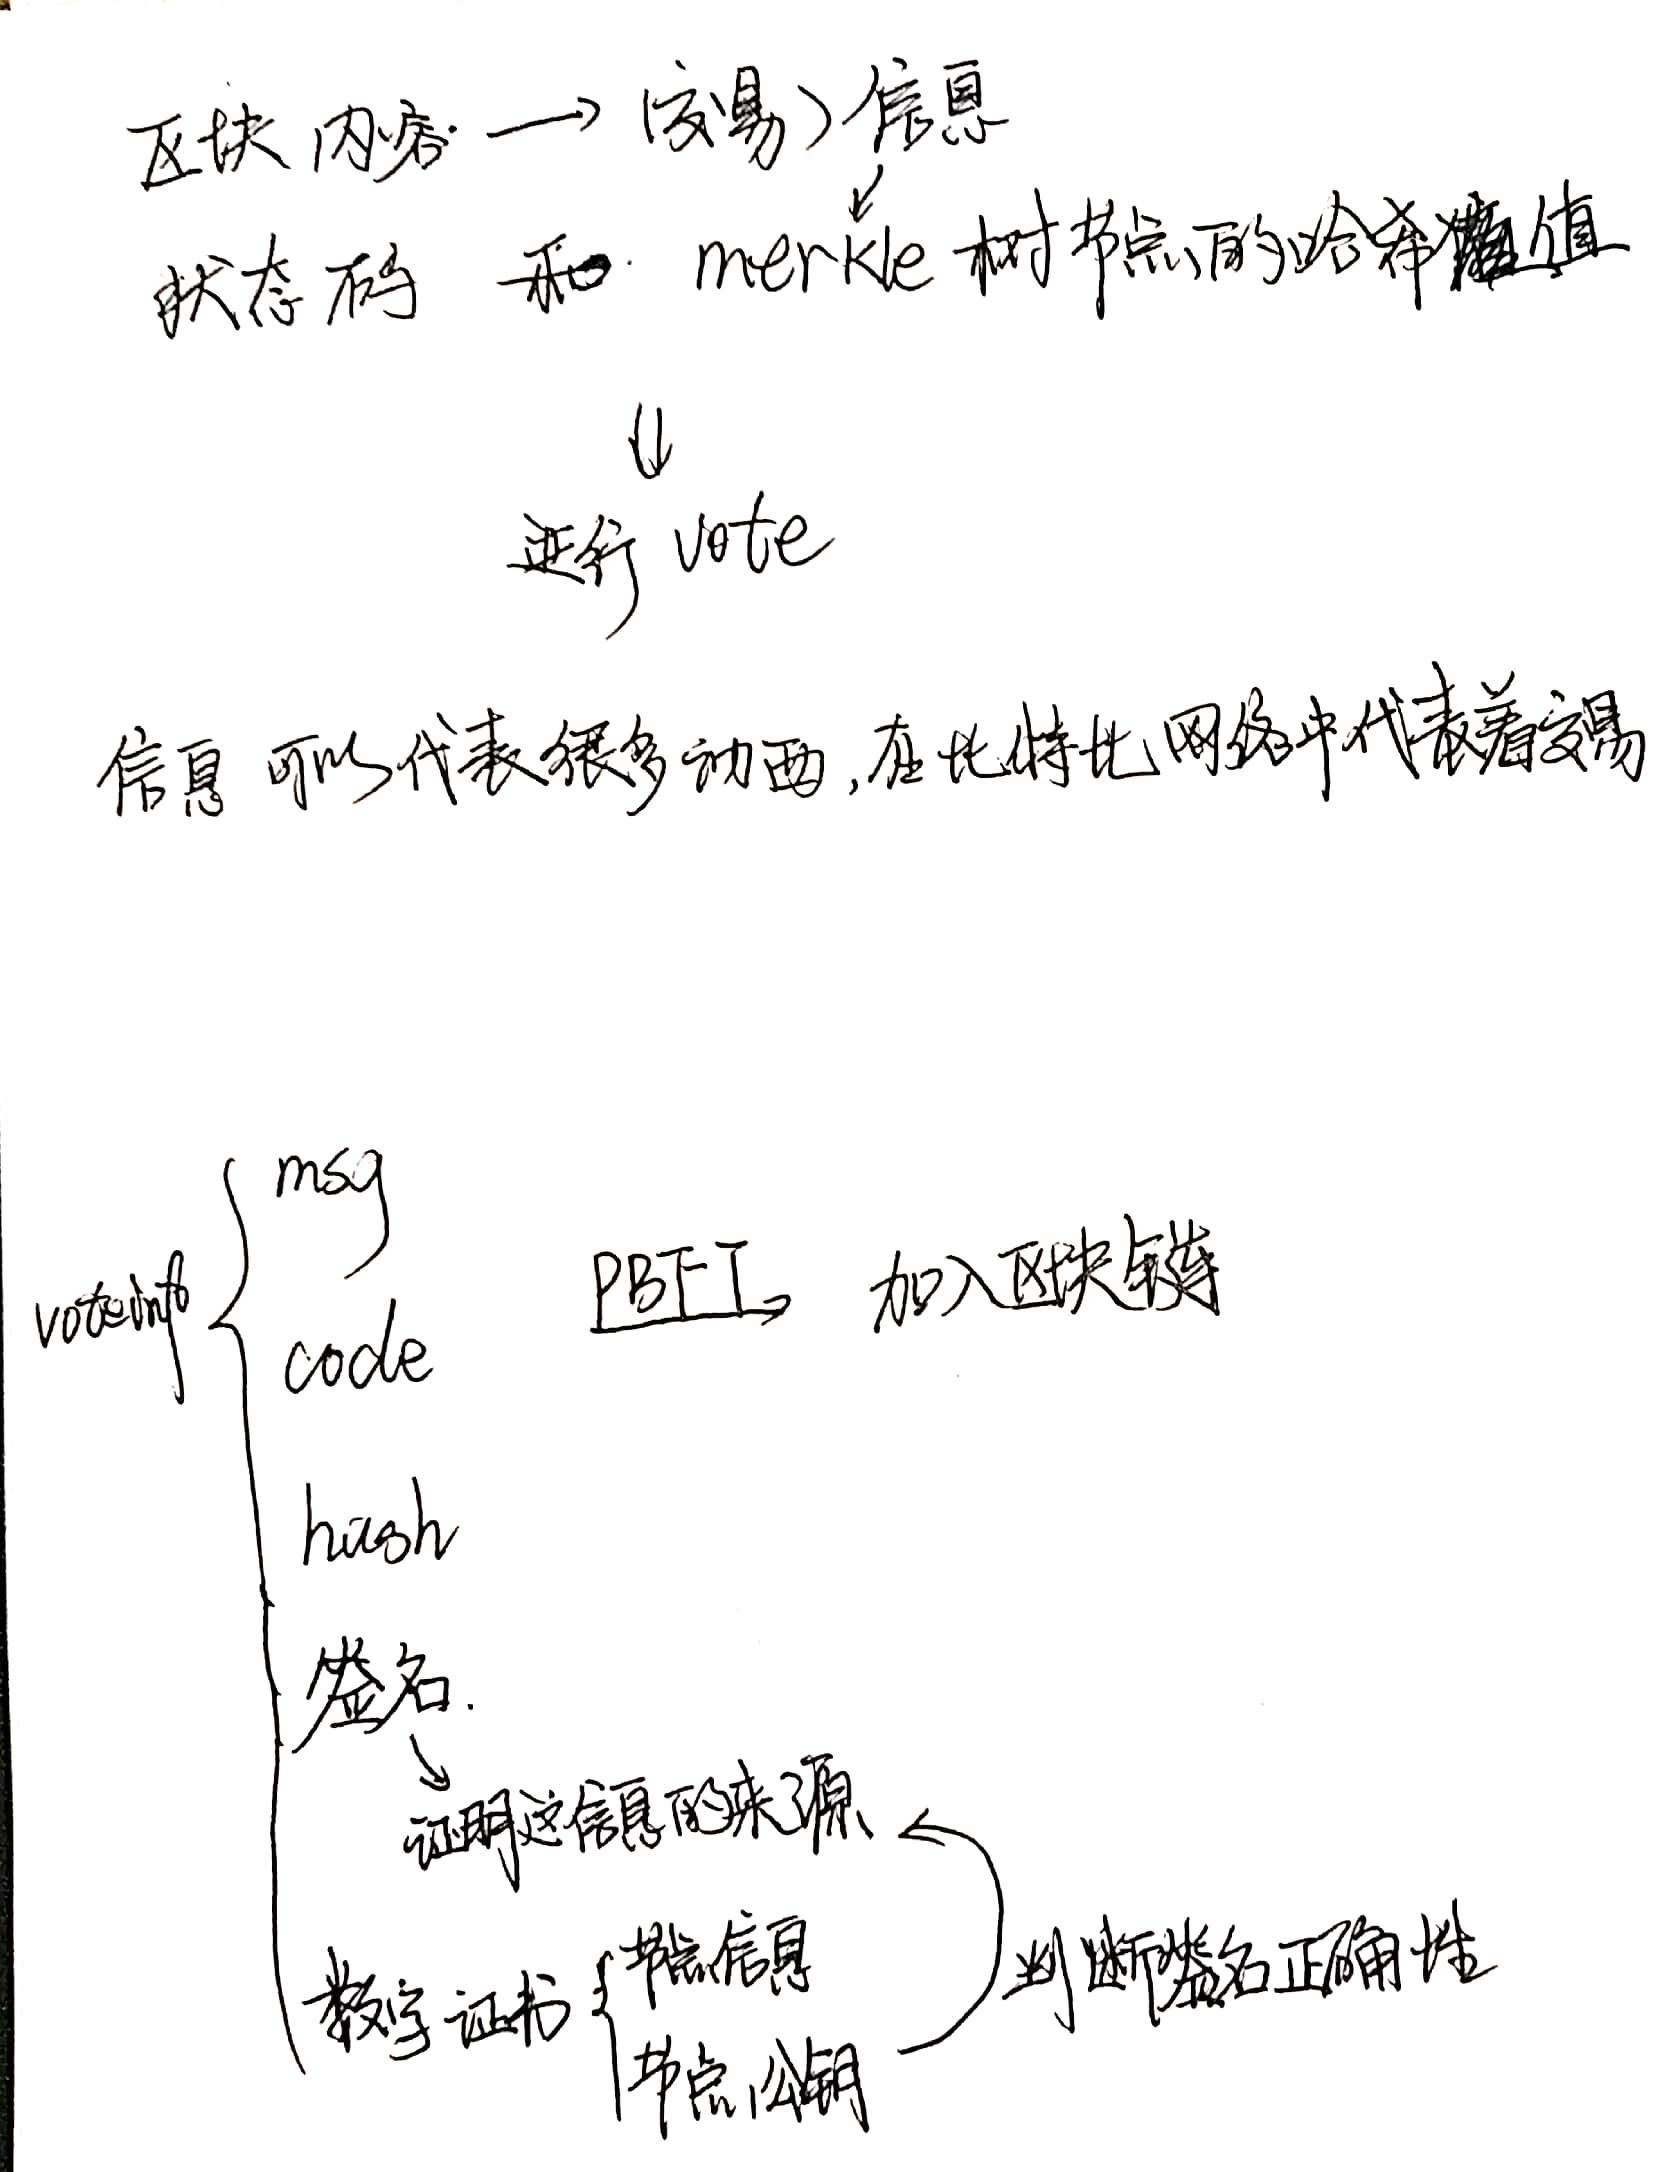 区块内容 → (交易)信息
↙
状态码 和 merkle 树节点的哈希值
⇓
进行 vote
信息可以代表很多动西,在比特比网络中代表着交易
voteinf
msg
code
PBFT 加入区块链
hash
签名.
↘
证明这信息的来源
数字证书 { 节点信息
节点公钥
判断签名正确性